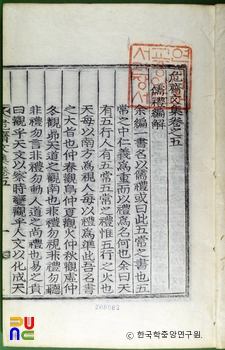 危齋文集卷之五
儒禮編解
余編一書名以儒禮或曰此五常之書也五
常之中仁義為重而以禮為名何也余曰天
有五行人有五常五常之禮惟五行之火也
天每以南方為視人每以禮為準此吾名書
之大旨也仲春觀鳥仲夏觀火仲秋觀虛仲
冬觀昴天道之觀南也非禮勿視非禮勿聽
非禮勿言非禮勿動人道之尚禮也易之賁
曰觀乎天文以察時變觀乎人文以化成天
200083
PUNC
한국학중앙연구원